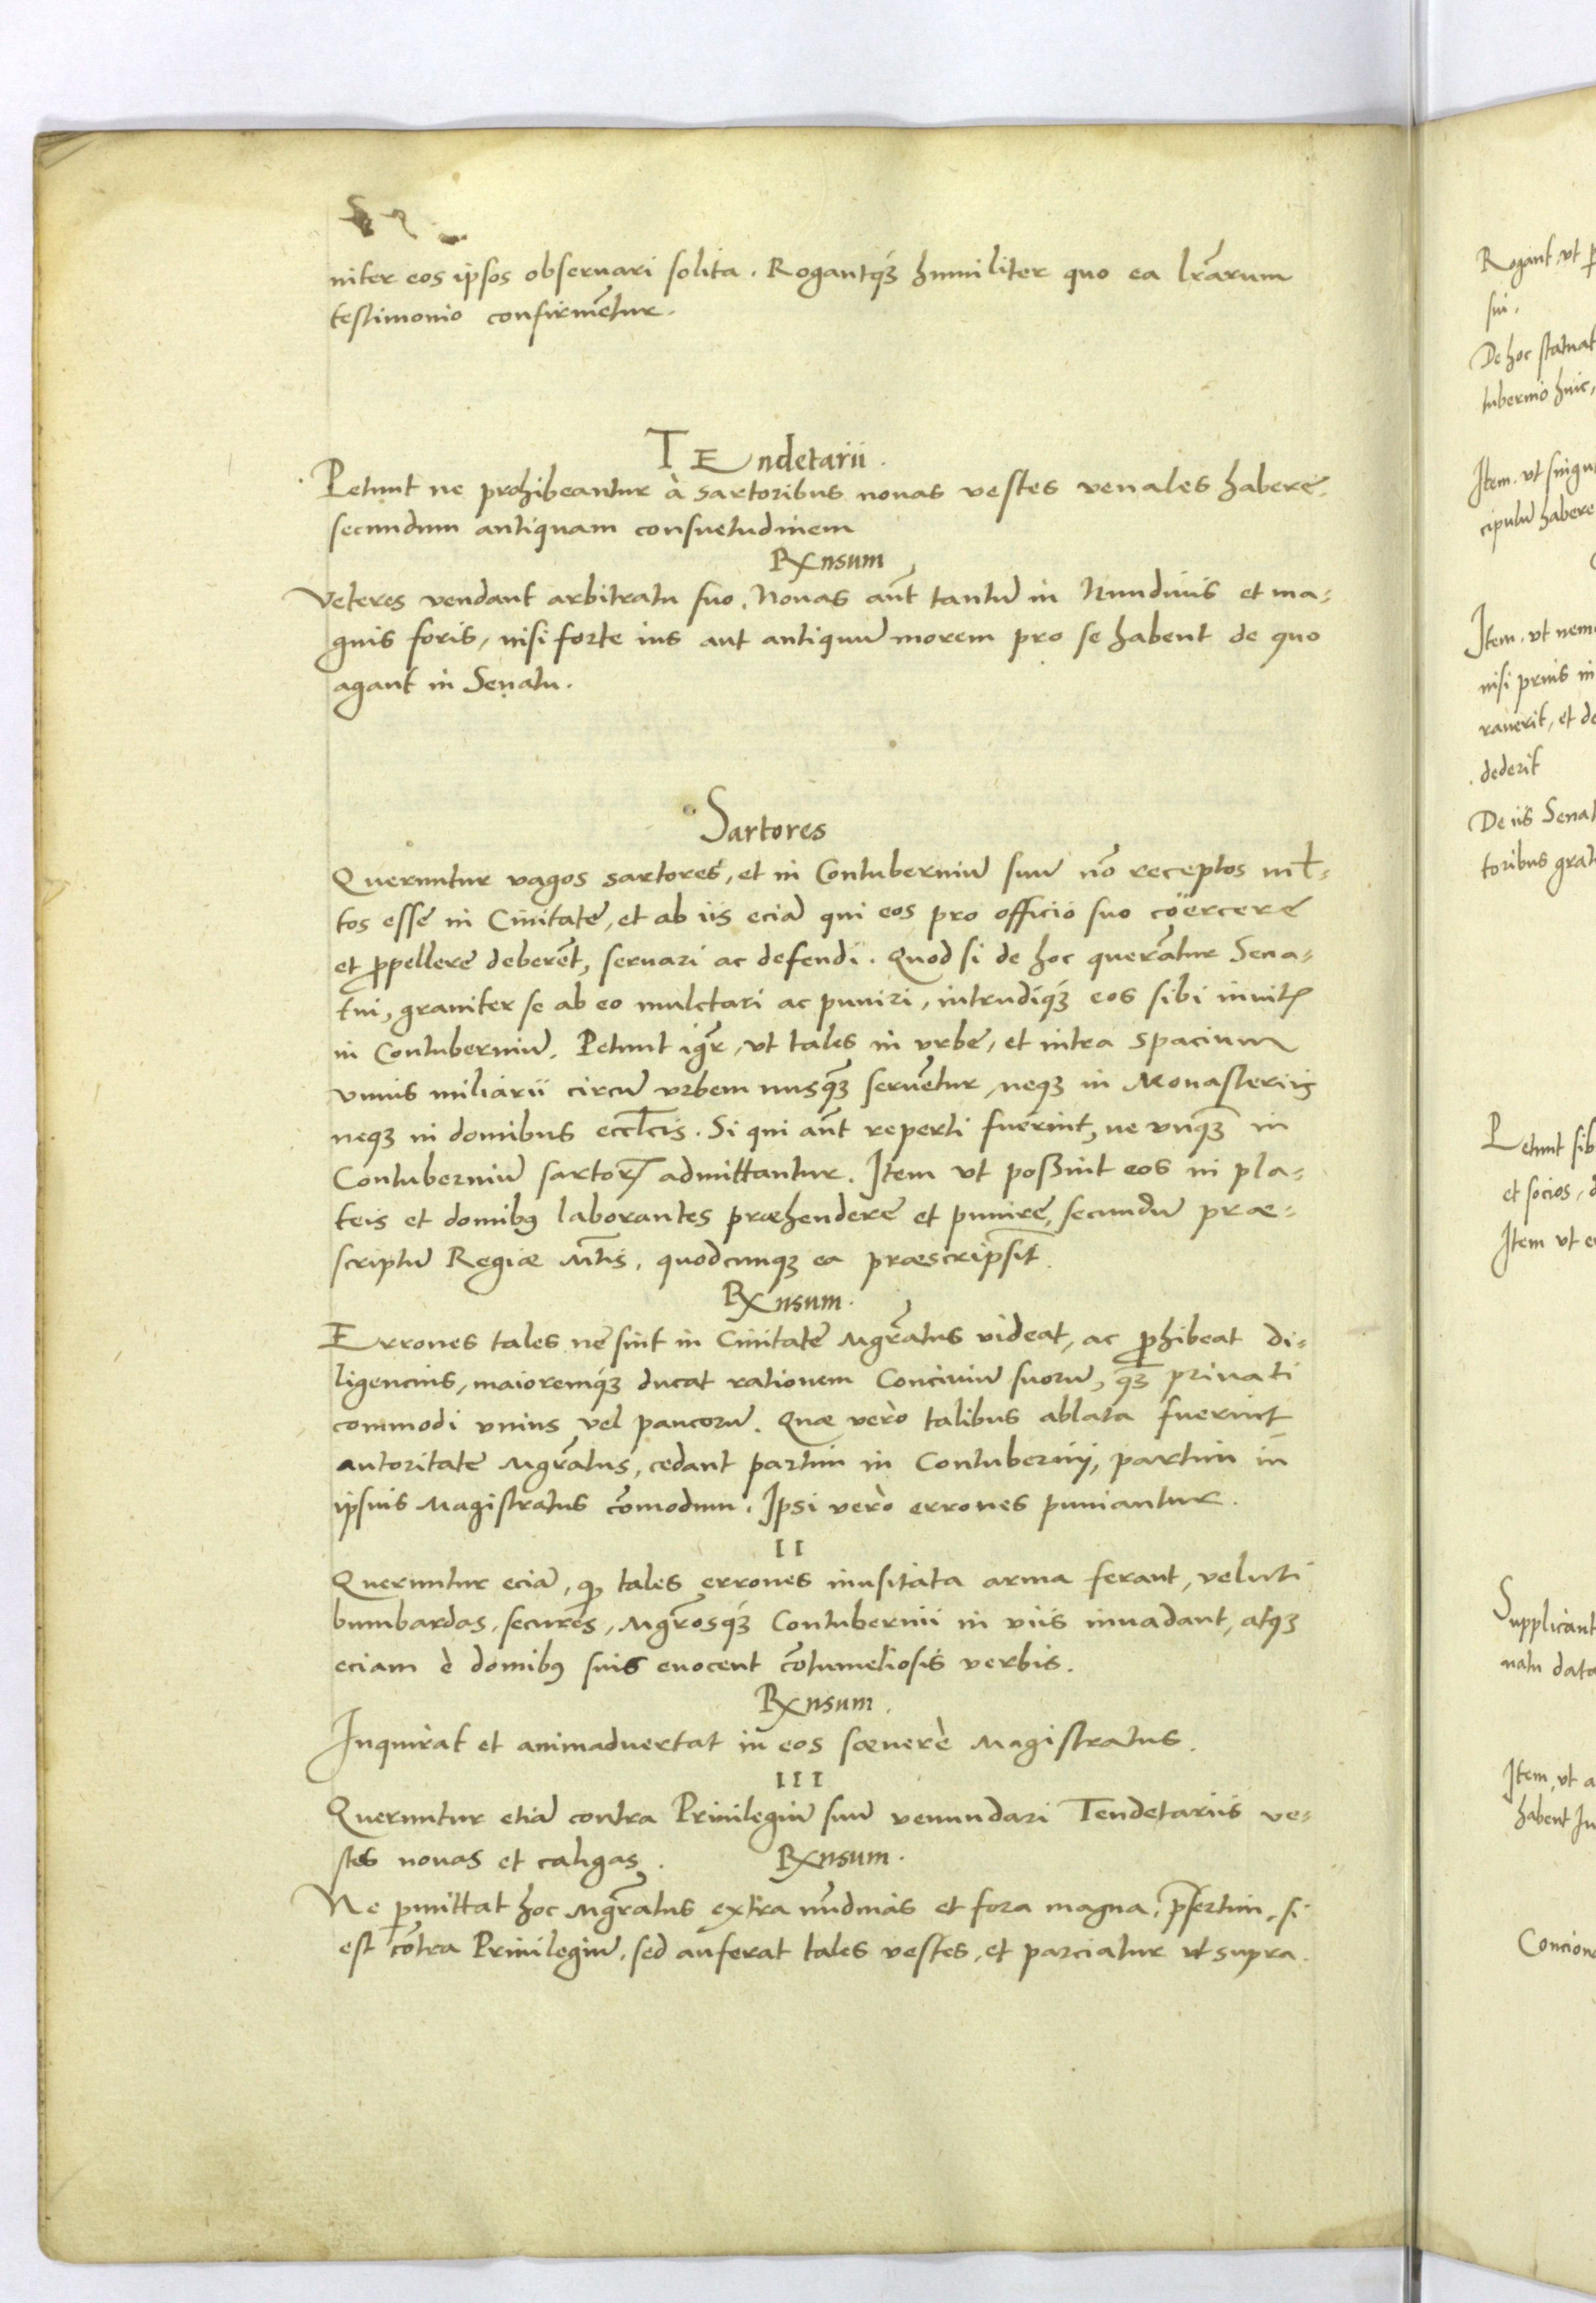 niter eos ipsos obseruari solita. Rogantq́ꝫ humiliter quo ea lr̃arum
testimonio confirmẽtur.
TEndetarii.
Petunt ne prohibeantur à sartoribus nouas vestes venales habere,
secundum antiquam consuetudinem
Rxnsum
Veteres vendant arbitratu suo. Nouas aũt tantũ in Nundinis et ma-
gnis foris, nisi forte ius aut antiquũ morem pro se habent de quo
agant in Senatu.
Sartores
Queruntur vagos sartores, et in Contuberniũ suũ nõ receptos ml̃-
tos esse in Ciuitate, et ab iis eciã qui eos pro officio suo coërcere
et ꝓpellere deberẽt, seruari ac defendi. Quod si de hoc querãtur Sena-
tui, grauiter se ab eo mulctari ac puniri, intrudiq́ꝫ eos sibi inuitꝭ
in Contuberniũ. Petunt igr̃, vt tales in vrbe, et intra spacium
vnius miliarii circũ vrbem nusq̃ꝫ seruẽtur, neqꝫ in Monasteriis
neqꝫ in domibus eccl̃cis. Si qui aũt reperti fuerint, ne vnq̃ꝫ in
Contuberniũ sartorꝝ admittantur. Item vt poßint eos in pla-
teis et domibꝰ laborantes præhendere et punire, secundũ præ-
scriptũ Regiæ Mt̃is, quodcunqꝫ ea præscripsit.
Rxnsum.
Errones tales ne sint in Ciuitate Mgr̃atus videat, ac ꝓhibeat di-
ligencius, maioremq́ꝫ ducat rationem Conciuiũ suorũ, q̃ꝫ priuati
commodi vnius vel paucorũ. Quæ verò talibus ablata fuerint
autoritate Mgr̃atus, cedant partim in Contubernij, partim in
ipsius Magistratus cõmodum. Ipsi verò errones puniantur.
II
Queruntur eciã, ꝙ tales errones inusitata arma ferant, veluti
bumbardas, secures, Mgr̃osq́ꝫ Contubernii in viis inuadant, atqꝫ
eciam è domibꝰ suis euocent cõtumeliosis verbis.
Rxnsum.
Inquirat et animaduertat in eos sæuerè Magistratus.
III
Queruntur etiã contra Priuilegiũ suũ venundari Tendetariis ve-
stes nouas et caligas. Rxnsum.
Ne ꝑmittat hoc Mgr̃atus extra nũdinas et fora magna, p̃sertim, si
est cõtra Priuilegiũ, sed auferat tales vestes, et parciatur vt supra.
Rogant, vt
sui.
De hoc statuat
tubernio huic,
Item. vt singu
cipulũ habere
Item. vt nem
nisi prius in
rauerit, et de
dederit
De iis Senat
toribus grat
Petunt sib
et socios,
Item vt e
Supplicant
natu data
Item, vt a
habent In
Concion